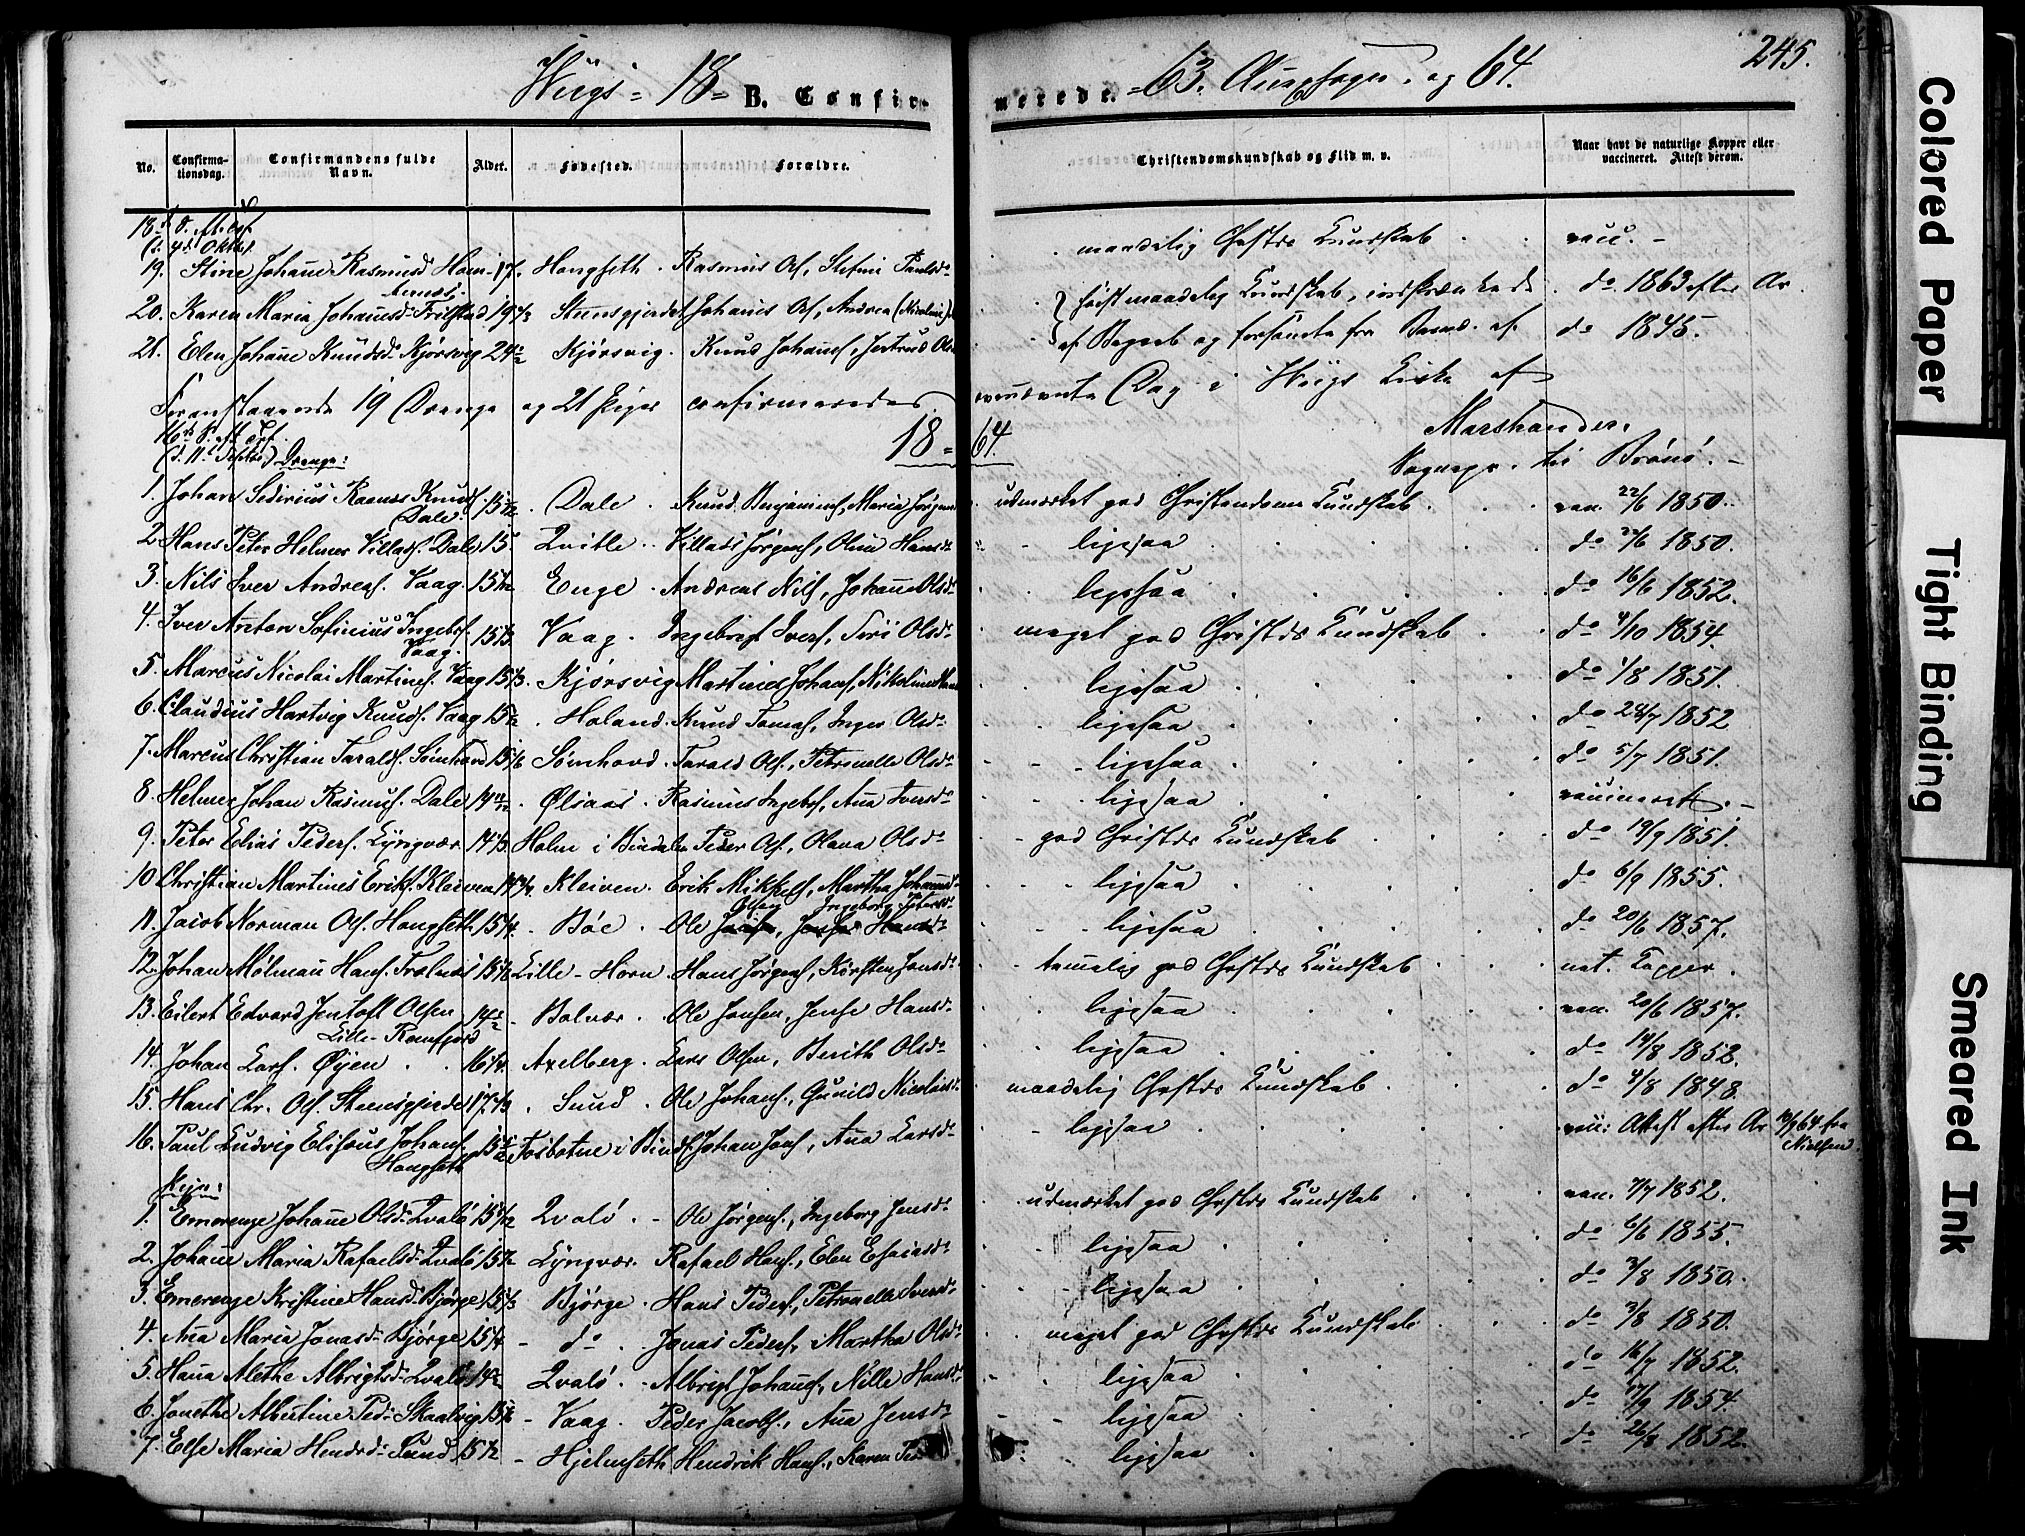 245.
Viigs - 18 = B. Confir= merede. = 63. Annexsogn. og 64.
No. Confirmationsdag. Confirmandens fulde Navn. Alder. Fødested. Forældre. Christendomskundskab og Flid m. v. Naar havt de naturlige Kopper eller vaccineret. Attest derom.
18
(d. 4d Oktbr.
19. Stine Johane Rasmusd. 17. Hongseth. Rasmus Ols., Stefine Paulsd. maadelig Chrstds Kundskab vacc.
20. Karen Maria Johannesd. 19 Steensgjerdet Johanes Ols., Andrea (Nicolai) høist maadelig Kundskab, indskrænkede do 1863 efter Ar.
21. Elen Johane Knudsd. Kjørsvig 24 Kjørsvig. Knud Johans., Jertrud Ols. af Begreb og forsømte fra do 1845.
Foranstaaende 19 Drenge og 21 Piger confirmeredes ovennævnte Dag i Viigs Kirke af
Marshander.
Sognepr. til Brønø.
18 = 64.
(d. 11te Septbr.) Drenge:
1. Johan Knuds. Dale. 15 Dale. Knud Benjamins., Maria Jørgens. udmærket god Christendoms Kundskab. vacc. 22/6 1850.
2. Hans Peter Helmer Villads. Dale 15 Qvitle. Villads Jørgens., Oline Hansd. ligesaa do 22/6 1850.
3. Nils Iver Andreas. Vaag. 15 Enge. Andreas Nils., Johane Olsd. ligesaa do 16/6 1852.
4. Iver Anton Sefinius Ingebrs. Vaag. 15 Vaag. Ingebrigt Ivers., Siri Olsd. meget god Christds Kundskab do 4/10 1854.
5. Marcus Nicolai Martines. Vaag 15 Kjørsvig Martines Johans., Nikoline ligesaa do 1/8 1851.
6. Claudius Hartvig Knuds. Vaag 15 Holand. Knud Tomas., Inger Olsd. ligesaa do 28/7 1852
7. Marcus Christian Taralds. Sømhovd 15 Sømhovd. Tarald Ols., Petronelle Olsd. ligesaa do 5/7 1851.
8. Helmer Johan Rasmus. Dale 14 Ølsaas. Rasmus Ingebrs., Ana Iversd. ligesaa vaccineret.
9. Peter Edias Peders. Lyngvær 14 Holm i Bindalen Peder Ols., Olava Olsd. god Christds Kundskab do 19/9 1851.
10. Christian Martines Eriks. Kleiven 14 Kleiven. Erik Mikkels., Martha Johannesd. ligesaa do 6/9 1855.
11. Jacob Norman Ols. Hongseth 15 Bøe. Ole Olsen Ingeborg Petersd. ligesaa do 20/6 1857.
12. Johan Mølman Hans. Trælnes 15 Lille-Horn. Hans Jørgens., Kirsten Jensd. temmelig god Chrstds Kundskab nat. Kopper.
13. Eilert Edvard Jentoft Olsen Lille-Kamfjord 14 Bolvær. Ole Jonsen, Jense Hansd. ligesaa vacc. 20/6 1857.
14. Johan Lars. Øyen 16 Axelberg. Lars Olsen, Berith Olsd. ligesaa do 14/8 1852.
15. Hans Chr. Ols. Steensgjerde 17 Sund. Ole Johans., Gunild Nicolaisd. maadelig Chrstds Kundskab do 4/8 1848.
16. Paul Ludvig Eliseus Johans. Hongseth 15 Tosbotne i Bind. Johan Jons., Ana Larsd. ligesaa vacc. Attest efter Ar 64 fra Nielsen.
Piger:
1. Emerenze Johane Olsd. Qvalø 15 Qvalø. Ole Jørgens., Ingeborg Jensd. udmærket god Chrstds Kundskab vacc. 7/7 1852.
2. Johane Maria Rafaelsd. Qvalø 15 Lyngvær. Rafael Hans., Elen Esaiasd. ligesaa do 6/6 1855.
3. Emerenze Kristine Hansd. Bjørge 15 Bjørge. Hans Peders., Petronelle Iversd. ligesaa do 3/8 1850.
4. Ana Maria Jonasd. Bjørge 15 do Jonas Peders., Martha Olsd. meget god Chrstds Kundskab do 3/8 1850.
5. Hana Alethe Albrigtsd. Qvalø 14 Qvalø. Albrigt Johans., Nille Hansd. ligesaa do 16/7 1852.
6. Jonethe Albertine Ped. Skaalvig 15 Vaag. Peder Jacobs., Ana Jensd. ligesaa do 27/9 1854
7. Else Maria Hendrd. Sund 15 Hjelmseth Hendrik Hans., Karen Ped ligesaa do 26/8 1852.
Colored Paper
Tight Binding
Smeared Ink